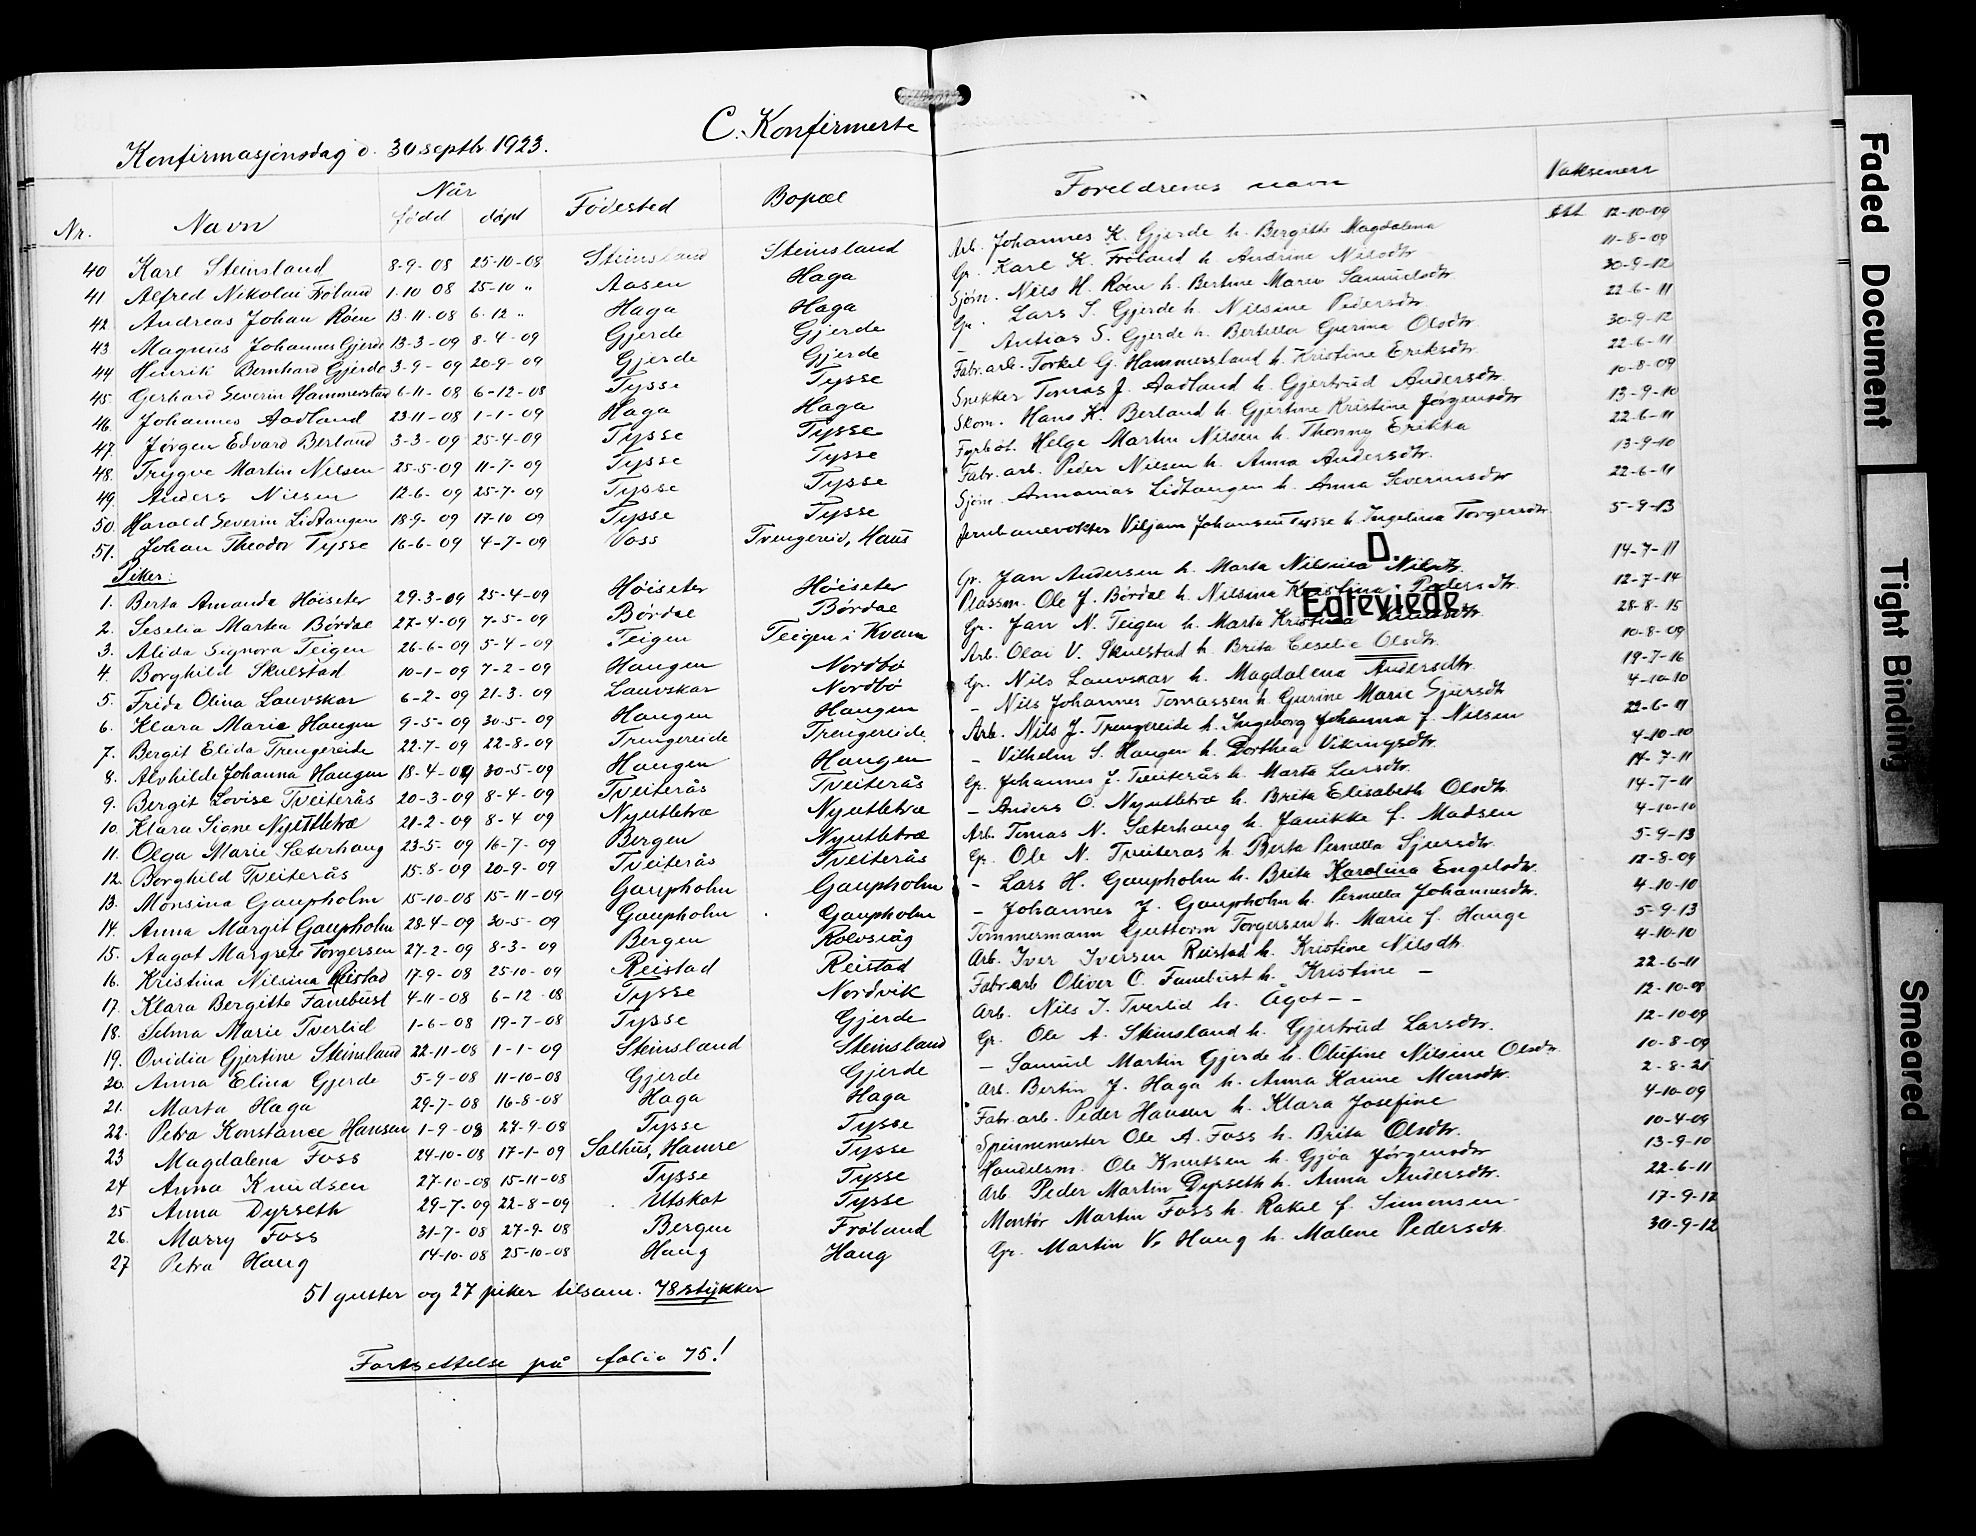 C. Konfirmerte
Konfirmasjonsdag d. 30 septbr. 1923.
Nr. Navn Når født døpt Fødested Bopæl Foreldrenes navn Vaksinert
40 Karl Steinsland 8-9-08 25-10-08 Steinsland Steinsland Arb. Johannes K. Gjerde h. Bergitte Magdalena att. 12-10-09
41 Alfred Nikolai Frøland 1-10 08 25-10 " Aasen Haga Gr. Karl K. Frøland h. Andrine Nilsdtr. 11-8-09
42. Andreas Johan Røen 13-11-08 6-12 " Haga Haga Sjøm. Nils H. Røen h. Bertine Maren Samuelsdtr 30-9-12
43 Magnus Johannes Gjerde 13-3-09 8-4-09 Gjerde Gjerde Gr. Lars S. Gjerde h. Nilsine Pedersdtr 22-6-11
44 Henrik Bernhard Gjerde 3-9-09 20-9-09 Gjerde Gjerde — Antias S. Gjerde h. Bertella Gurina Olsdtr. 30-9-12
45. Gerhard Severin Hammersland 6-11-08 6-12-08 Tysse Tysse Fabr. arb. Torkel G. Hammersland h. Kristine Eriksdtr. 22-6-11
46. Johannes Aadland 23-11-08 1-1-09 Haga Haga Snekker Tomas J. Aadland h. Gjertrud Andersdtr. 10-8-09
47. Jørgen Edvard Berland 3-3-09 25-4-09 Tysse Tysse Skom. Hans K. Berland h. Gjertine Kristine Jørgensdtr 13-9-10
48. Trygve Martin Nilsen 25-5-09 11-7-09 Tysse Tysse Fyrbøt. Helge Martin Nilsen h. Thonny Erikka 22-6-11
49. Anders Nilsen 12-6-09 25-7-09 Tysse Tysse Fabr. arb. Peder Nilsen h. Anna Andersdtr. 13-9-10
50. Harald Severin Lidtangen 18-9-09 17-10 09 Tysse Tysse Sjøm. Annanias Lidtangen h. Anna Severinsdtr 22-6-11
51. Johan Theodor Tysse 16-6-09 4-7-09 Voss Trengereid, Haus Jernbanevokter Viljam Johansen Tysse h. Ingelina Torgersdtr 5-9-13
D.
Egteviede.
Piker:
1. Berta Amanda Høiseter 29-3-09 25-4-09 Høiseter Høiseter Gr. Jan Andersen h. Marta Nilsina Nilsdtr. 14-7-11
2. Seselia Marta Børdal 27-4-09 7-5-09 Børdal Børdal Plassm. Ole J. Børdal h. Nilsina Kristina Pedersdtr. 12-7-14
3. Alida Signora Teigen 26-6-09 5-4-09 Teigen Teigen i Kvam Gr. Jan N. Teigen h. Marta Kristina 28-8-15
4. Borghild Skulstad 10-1-09 7-2-09 Haugen Nordbø Arb. Olai V. Skulstad h. Brita Ceselie Olsdtr. 10-8-09
5. Frida Olina Lauvskar 6-2-09 21-3-09 Lauvskar Nordbø Gr. Nils Lauvskar h. Magdalena Andersdtr. 19-7-16
6. Klara Maria Haugen 9-5-09 30-5-09 Haugen Haugen — Nils Johannes Tomassen h. Gurine Marie Sjursdtr 4-10-10
7. Bergit Elida Trengereide 22-7-09 22-8-09 Trengereide Trengereide Arb. Nils J. Trengereide h. Ingeborg Johanna f. Nilsen 22-6-11
8. Alvhilde Johanna Haugen 18-4-09 30-5-09 Haugen Haugen — Vilhelm S. Haugen h. Dorthea Vikingsdtr. 4-10-10
9. Bergit Lovise Tveiterås 20-3-09 8-4-09 Tveiterås Tveiterås Gr. Johannes J. Tveiterås h. Marta Larsdtr. 14-7-11
10. Klara Sione Nyutletræ 21-2-09 8-4 09 Nyutletræ Nyutletræ — Anders O. Nyutletræ h. Brita Elisabeth Olsdtr. 14-7-11
11. Olga Marie Sæterhaug 23-5-09 16-7-09 Bergen Nyutletræ Arb. Tomas N. Sæterhaug h. Janikke f. Madsen 4-10-10
12. Borghild Tveiterås 15-8-09 20-9-09 Tveiterås Tveiterås Gr. Ole N. Tveiteras h. Berta Pernella Sjursdtr. 5-9-13
13. Monsina Gaupholm 15-10-08 15-11-09 Gaupholm Gaupholm — Lars H. Gaupholm h. Brita Karolina Engelsdtr. 12-8-09
14. Anna Margit Gaupholm 28-4-09 30-5-09 Gaupholm Gaupholm — Johannes J. Gaupholm h. Pernella Johannesdtr. 4-10-10
15. Aagot Margrete Torgersen 27-2-09 8-3-09 Bergen Rolvsvåg Tommermann Guttorm Torgersen h. Marie f. Hauge 5-9-13
16. Kristina Nilsina Reistad 17-9-08 25-10-09 Reistad Reistad Arb. Iver Iversen Reistad h. Kristine Nilsdtr. 4-10-10
17. Klara Bergitte Fanebust 4-11-08 6-12-08 Tysse Nordvik Fabr. arb Oliver O. Fanebust h. Kristine — 22-6-11
18. Selma Marie Tverlid 1-6-08 19-7-08 Tysse Gjerde Arb. Nils I. Tverlid h. Ågot — — 12-10-08
19. Ovidia Gjertine Steinsland 22-11-08 1-1-09 Steinsland Steinsland Gr. Ole A. Steinsland h. Gjertrud Larsdtr. 12-10-09
20. Anna Elina Gjerde 5-9-08 11-10-08 Gjerde Gjerde — Samuel Martin Gjerde h. Olufine Nilsine Olsdtr. 10-8-09
21. Marta Haga 29-7-08 16-8-08 Haga Haga Arb. Bertin J. Haga h. Anna Karine Monsdtr. 2-8-21
22. Petra Konstance Hansen 1-9-08 27-9-08 Tysse Tysse Fabr. arb. Peder Hansen h. Klara Josefine 4-10-09
23 Magdalena Foss 24-10-08 17-1-09 Salhus, Hamre Tysse Spinnemester Ole A. Foss h. Brita Olsdtr. 10-4-09
24 Anna Knudsen 27-10-08 15-11-08 Tysse Tysse Handelsm. Ole Knutsen h. Gjøa Jørgensdtr 13-9-10
25 Anna Dyrseth 29-7-09 22-8-09 Utskot Tysse Arb. Peder Martin Dyrseth h. Anna Andersdtr. 22-6-11
26. Marry Foss 31-7-08 27-9-08 Bergen Frøland Montør Martin Foss h. Rakel f. Simonsen 17-9-12
27 Petra Haug 14-10-08 25-10-08 Haug Haug Gr. Martin V. Haug h. Malene Pedersdtr. 30-9-12
51 gutter og 27 piker tilsam. 78 stykker
Fortsettelse på folio 75!
Faded Document
Tight Binding
Smeared